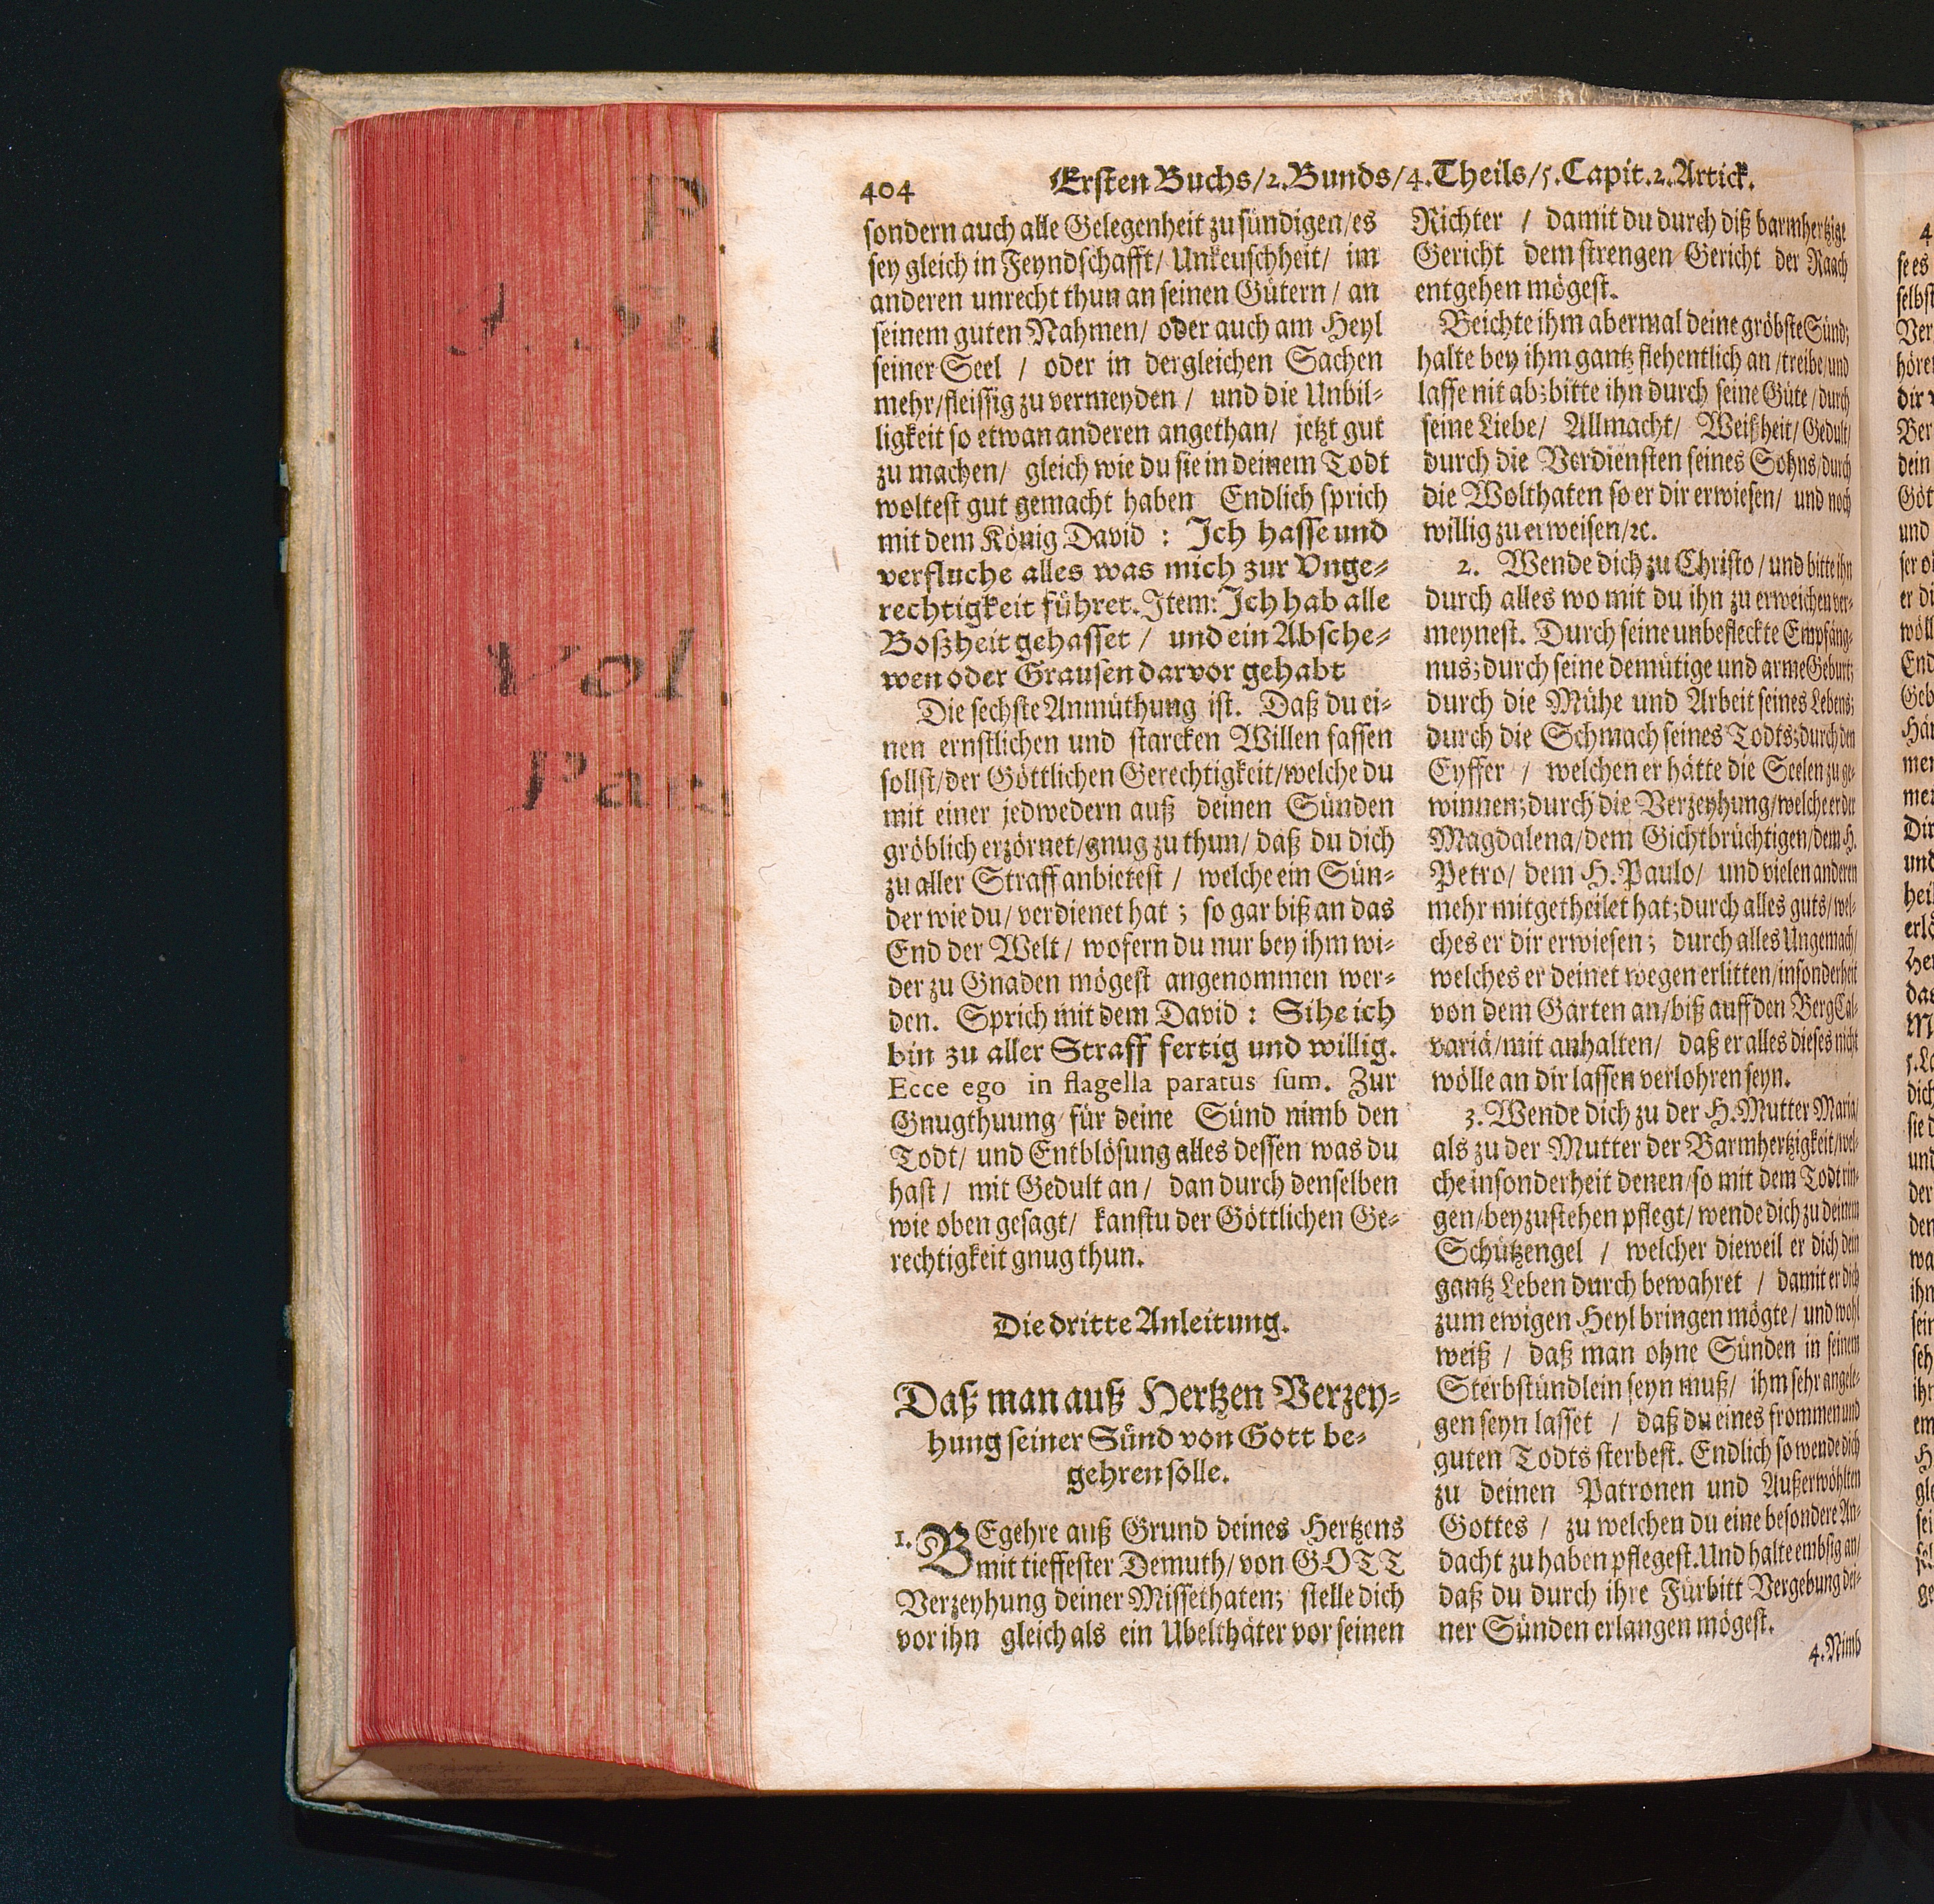 404 Ersten Buchs/2. Bunds/4. Theils/5. Capit. 2. Artick.
sondern auch alle Gelegenheit zu sündigen/es
sey gleich in Feyndschafft/ Unkeuschheit/ im
anderen unrecht thun an seinen Gütern / an
seinem guten Nahmen/ oder auch am Heyl
seiner Seel / oder in dergleichen Sachen
mehr/fleissig zu vermeyden / und die Unbil-
ligkeit so etwan anderen angethan/ jetzt gut
zu machen/ gleich wie du sie in deinem Todt
woltest gut gemacht haben Endlich sprich
mit dem König David : Ich hasse und
verfluche alles was mich zur Unge-
rechtigkeit führet. Item: Ich hab alle
Boßheit gehasset / und ein Absche-
wen oder Grausen darvor gehabt
Die sechste Anmüthung ist. Daß du ei-
nen ernstlichen und starcken Willen fassen
sollst/der Göttlichen Gerechtigkeit/welche du
mit einer jedwedern auß deinen Sünden
gröblich erzörnet/gnug zu thun/ daß du dich
zu aller Straff anbietest / welche ein Sün-
der wie du/ verdienet hat ; so gar biß an das
End der Welt / wofern du nur bey ihm wi-
der zu Gnaden mögest angenommen wer-
den. Sprich mit dem David : Sihe ich
bin zu aller Straff fertig und willig.
Ecce ego in flagella paratus sum. Zur
Gnugthuung für deine Sünd nimb den
Todt/ und Entblösung alles dessen was du
hast / mit Gedult an / dan durch denselben
wie oben gesagt/ kanstu der Göttlichen Ge-
rechtigkeit gnug thun.
Die dritte Anleitung.
Daß man auß Hertzen Verzey-
hung seiner Sünd von Gott be-
gehren solle.
1. BEgehre auß Grund deines Hertzens
mit tieffester Demuth/ von GOTT
Verzeyhung deiner Missethaten; stelle dich
vor ihn gleich als ein Ubelthäter vor seinen
Richter / damit du durch diß barmhertzige
Gericht dem strengen Gericht der Raach
entgehen mögest.
Beichte ihm abermal deine gröbste Sünd;
halte bey ihm gantz flehentlich an /treibe/und
lasse nit ab; bitte ihn durch seine Güte / durch
seine Liebe/ Allmacht/ Weißheit/ Gedult/
durch die Verdiensten seines Sohns/durch
die Wolthaten so er dir erwiesen/ und noch
willig zu erweisen/ꝛc.
2. Wende dich zu Christo / und bitte ihn
durch alles wo mit du ihn zu erweichen ver-
meynest. Durch seine unbefleckte Empfäng-
nus; durch seine demütige und arme Geburt;
durch die Mühe und Arbeit seines Lebens;
durch die Schmach seines Todts; durch den
Eyffer / welchen er hätte die Seelen zu ge-
winnen; durch die Verzeyhung/welche er der
Magdalena/dem Gichtbrüchtigen/dem H.
Petro/ dem H. Paulo/ und vielen anderen
mehr mitgetheilet hat; durch alles guts/wel-
ches er dir erwiesen; durch alles Ungemach/
welches er deinet wegen erlitten/insonderheit
von dem Garten an/biß auff den Berg Cal-
variä/mit anhalten/ daß er alles dieses nicht
wölle an dir lassen verlohren seyn.
3. Wende dich zu der H. Mutter Maria/
als zu der Mutter der Barmhertzigkeit/wel-
che insonderheit denen/so mit dem Todt rin-
gen/beyzustehen pflegt/ wende dich zu deinem
Schützengel / welcher dieweil er dich dem
gantz Leben durch bewahret / damit er dich
zum ewigen Heyl bringen mögte/ und wohl
weiß / daß man ohne Sünden in seinem
Sterbstündlein seyn muß/ ihm sehr angele-
gen seyn lasset / daß du eines frommen und
guten Todts sterbest. Endlich so wende dich
zu deinen Patronen und Außerwöhlten
Gottes / zu welchen du eine besondere An-
dacht zu haben pflegest. Und halte embsig an/
daß du durch ihre Fürbitt Vergebung dei-
ner Sünden erlangen mögest.
4. Nimb
P
Vol
Par